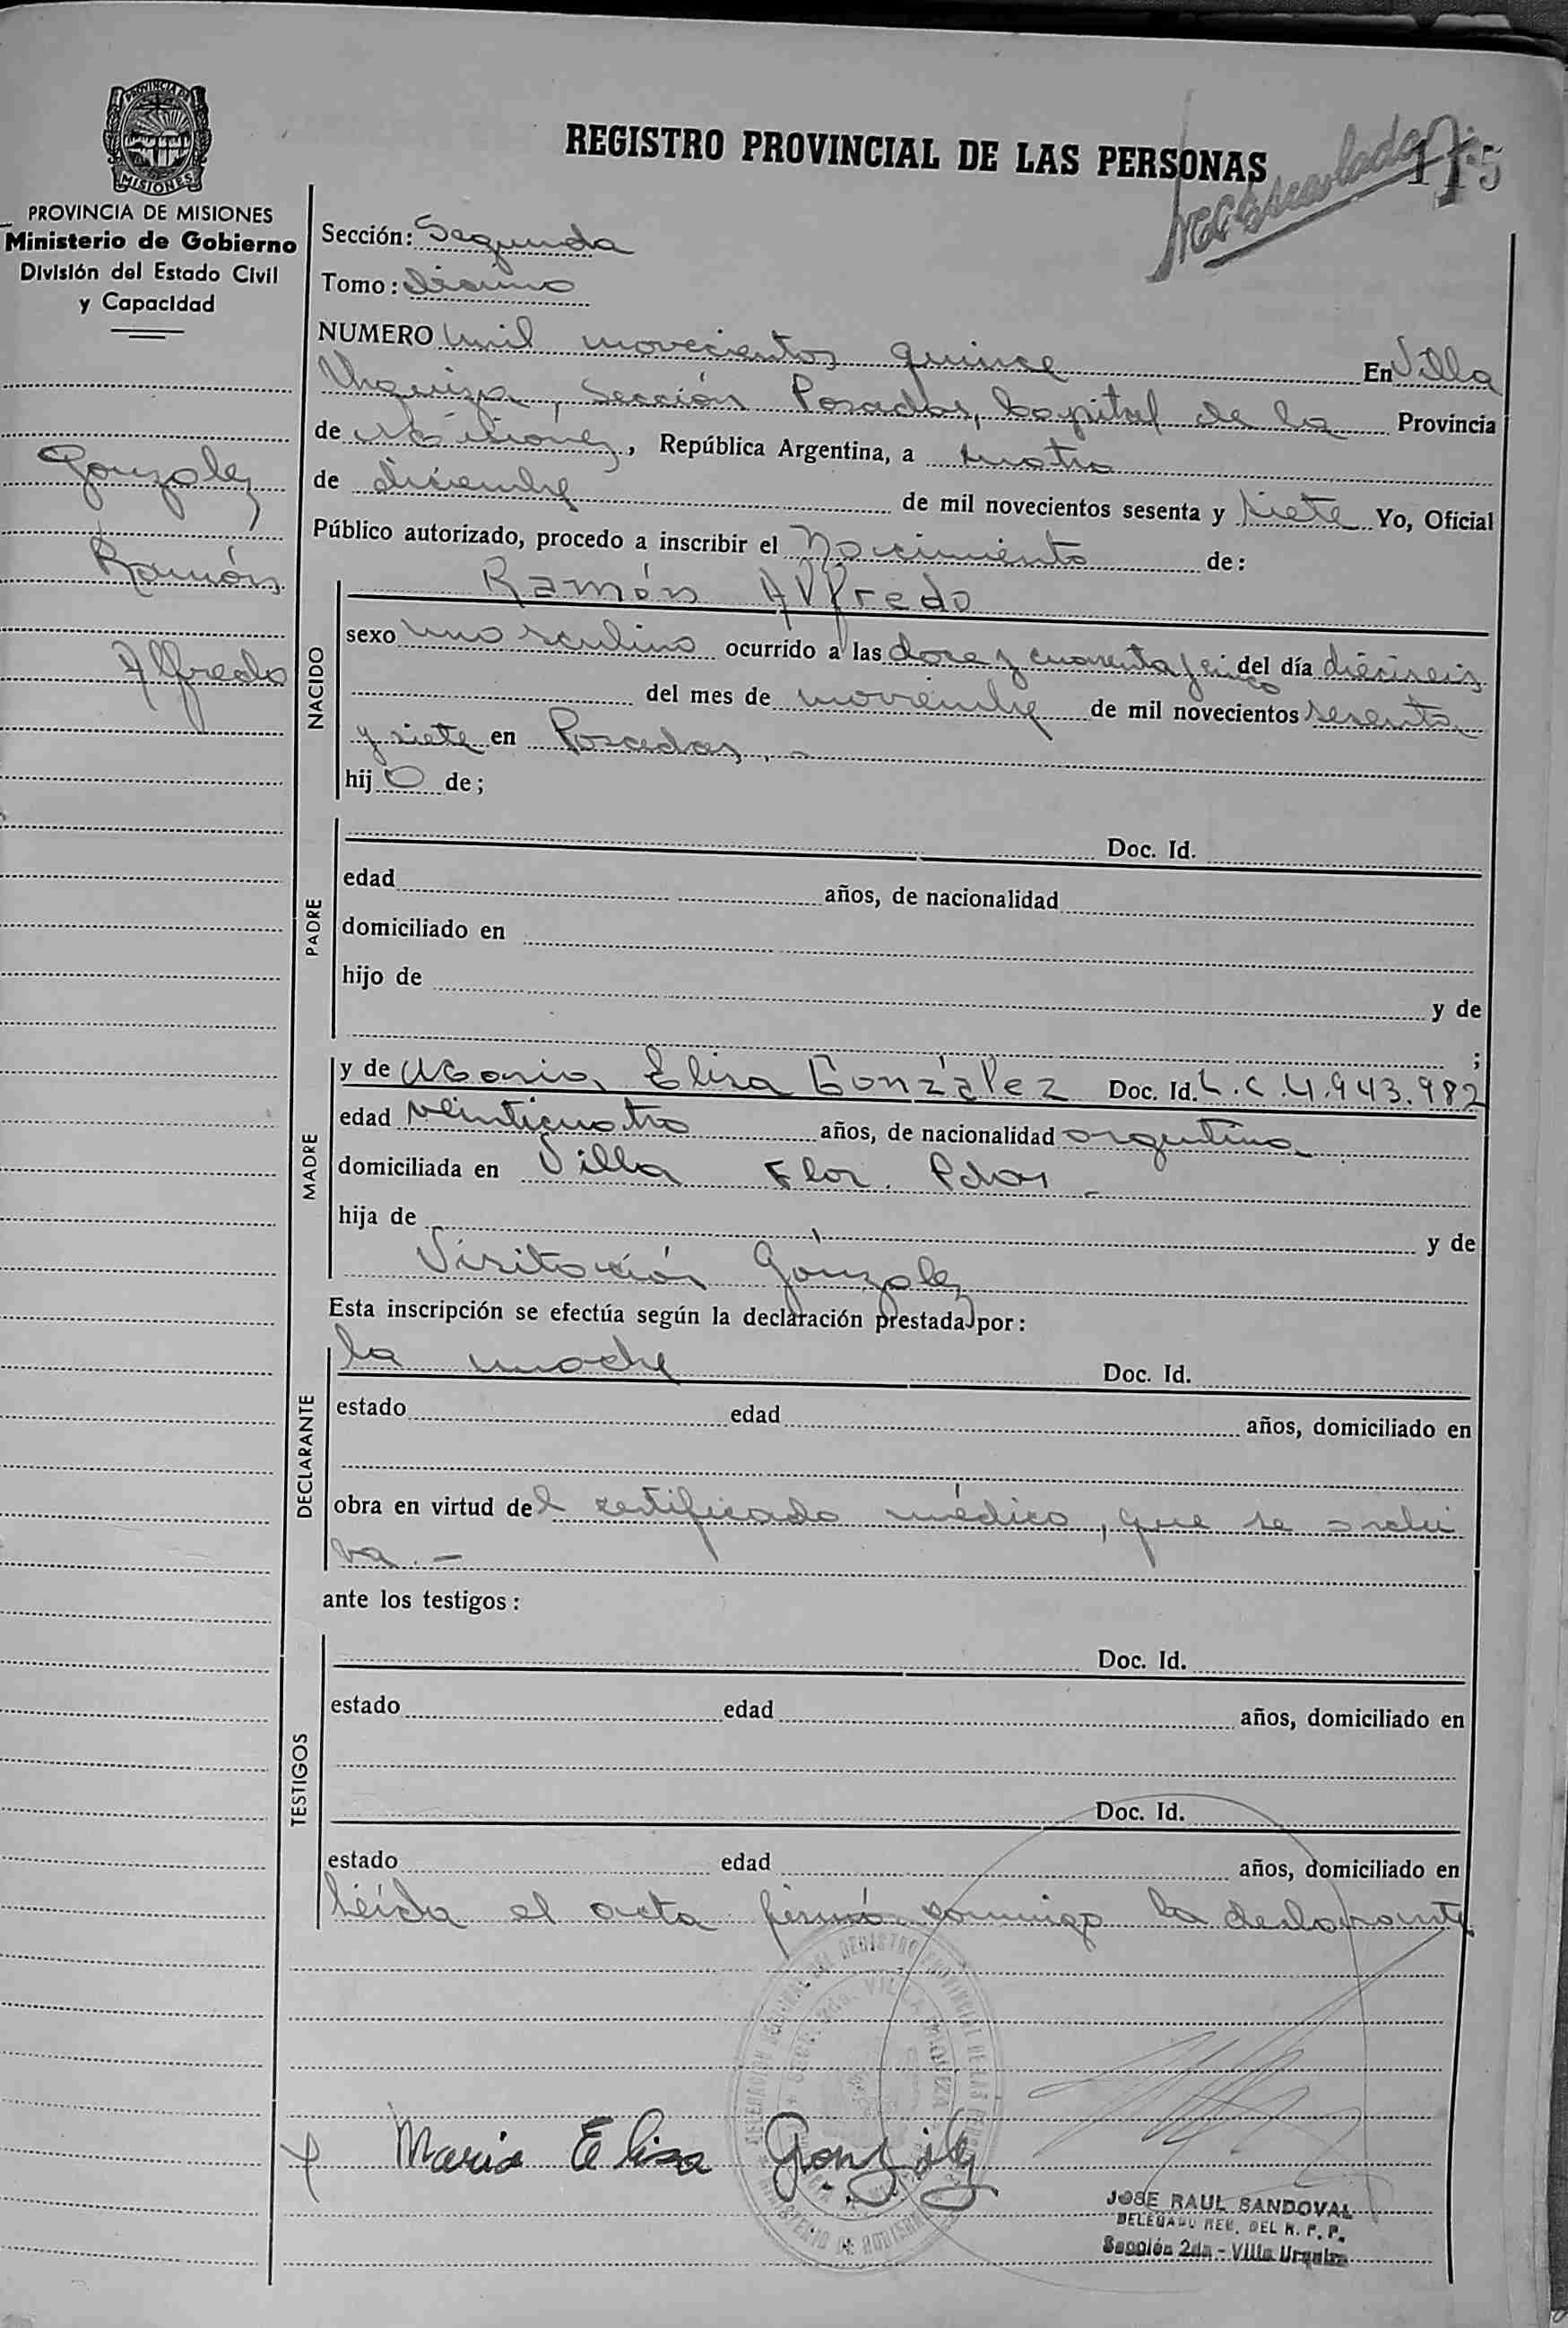 REGISTRO PROVINCIAL DE LAS PERSONAS
175
PROVINCIA DE MISIONES
PROVINCIA DE MISIONES
Ministerio de Gobierno
División del Estado Civil
y Capacidad
Gonzalez
Ramón
Alfredo
Sección: Segunda
Tomo: Décimo
NUMERO mil novecientos quince En Villa
Urquiza, Sección Posadas, Capital de la Provincia
de Misiones, República Argentina, a cuatro
de diciembre de mil novecientos sesenta y siete Yo, Oficial
Público autorizado, procedo a inscribir el Nacimiento de:
NACIDO
Ramón Alfredo
sexo masculino ocurrido a las doce y cuarenta y cinco del día dieciseis
del mes de noviembre de mil novecientos sesenta
y siete en Posadas, -
hijo de;
PADRE
Doc. Id.
edad años, de nacionalidad
domiciliado en
hijo de y de
;
MADRE
y de María Elisa González Doc. Id. L.C 4.943.982
edad veinticuatro años, de nacionalidad argentina
domiciliada en Villa Flor. Pdas -
hija de y de
Visitación González
Esta inscripción se efectúa según la declaración prestada por:
DECLARANTE
la madre Doc. Id.
estado edad años, domiciliado en
obra en virtud del certificado médico, que se archi
va. -
ante los testigos:
TESTIGOS
Doc. Id.
estado edad años, domiciliado en
Doc. Id.
estado edad años, domiciliado en
Leída el acta firmó conmigo la declarante
María Elisa González
JOSE RAUL SANDOVAL
DELEGADO REG. DEL R. P. P.
Sección 2da - Villa Urquiza